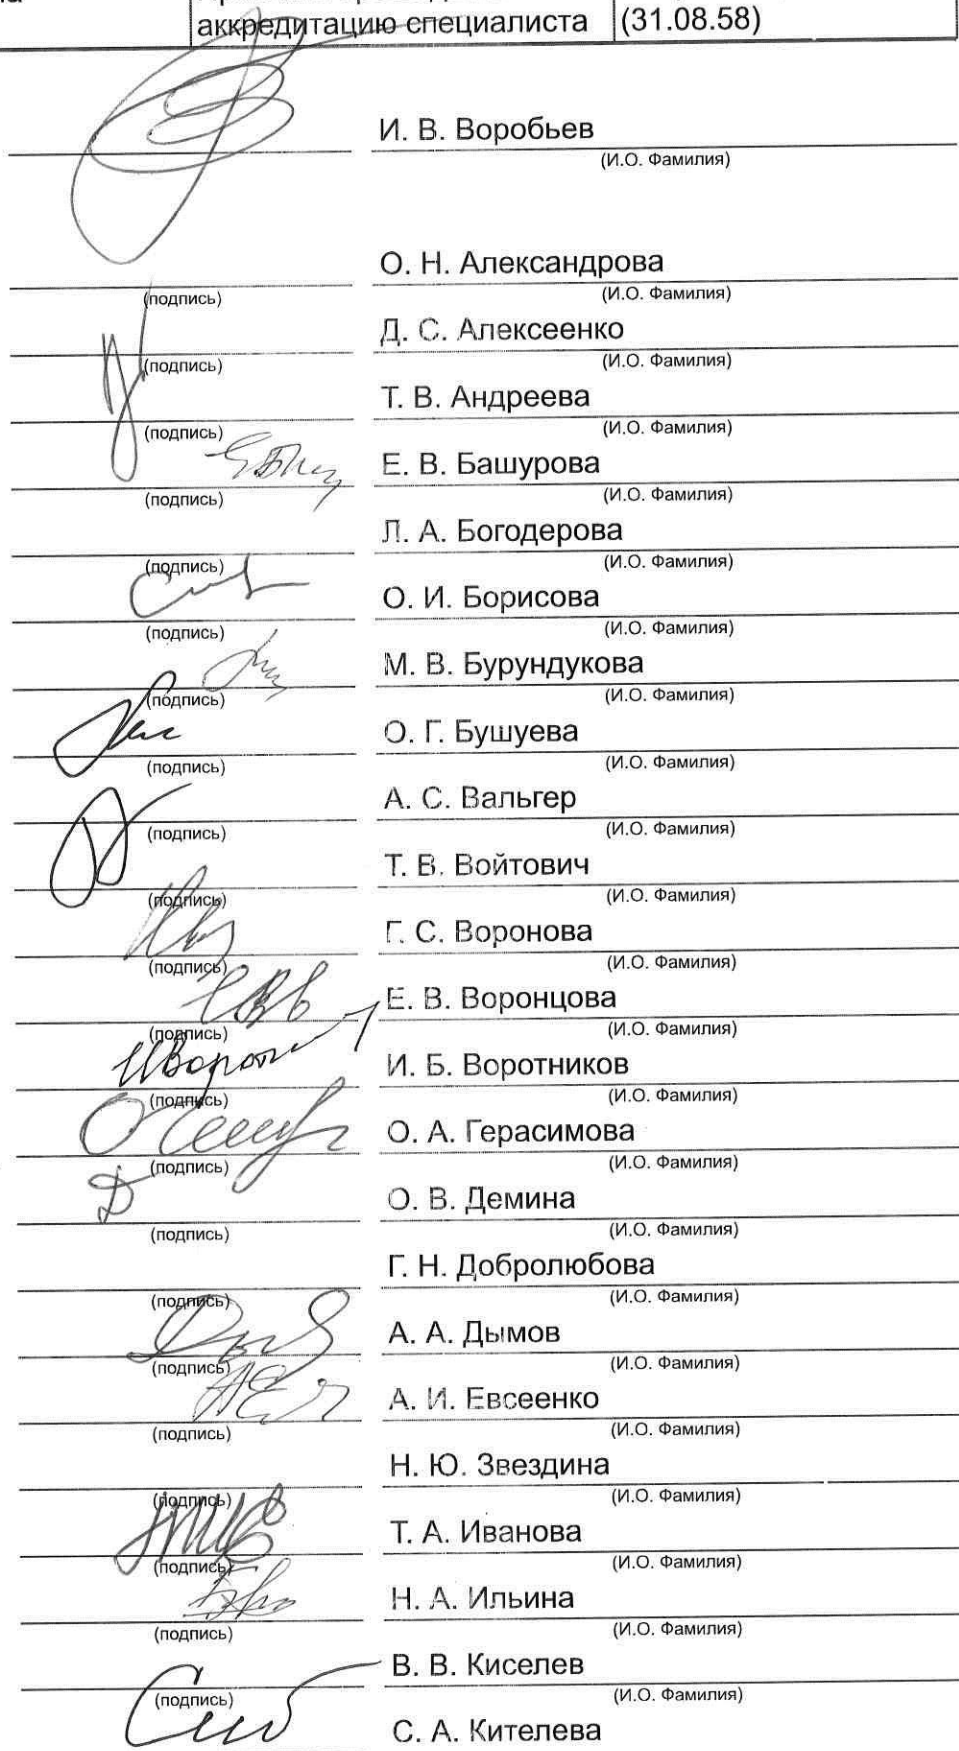 аккредитацию специалиста (31.08.58)
И. В. Воробьев
(И.О. Фамилия)
О. Н. Александрова
(подпись) (И.О. Фамилия)
Д. С. Алексеенко
(подпись) (И.О. Фамилия)
Т. В. Андреева
(подпись) (И.О. Фамилия)
Е. В. Башурова
(подпись) (И.О. Фамилия)
Л. А. Богодерова
(подпись) (И.О. Фамилия)
О. И. Борисова
(подпись) (И.О. Фамилия)
М. В. Бурундукова
(подпись) (И.О. Фамилия)
О. Г. Бушуева
(подпись) (И.О. Фамилия)
А. С. Вальгер
(подпись) (И.О. Фамилия)
Т. В. Войтович
(подпись) (И.О. Фамилия)
Г. С. Воронова
(подпись) (И.О. Фамилия)
Е. В. Воронцова
(подпись) (И.О. Фамилия)
И. Б. Воротников
(подпись) (И.О. Фамилия)
О. А. Герасимова
(подпись) (И.О. Фамилия)
О. В. Демина
(подпись) (И.О. Фамилия)
Г. Н. Добролюбова
(подпись) (И.О. Фамилия)
А. А. Дымов
(подпись) (И.О. Фамилия)
А. И. Евсеенко
(подпись) (И.О. Фамилия)
Н. Ю. Звездина
(подпись) (И.О. Фамилия)
Т. А. Иванова
(подпись) (И.О. Фамилия)
Н. А. Ильина
(подпись) (И.О. Фамилия)
В. В. Киселев
(подпись) (И.О. Фамилия)
С. А. Кителева